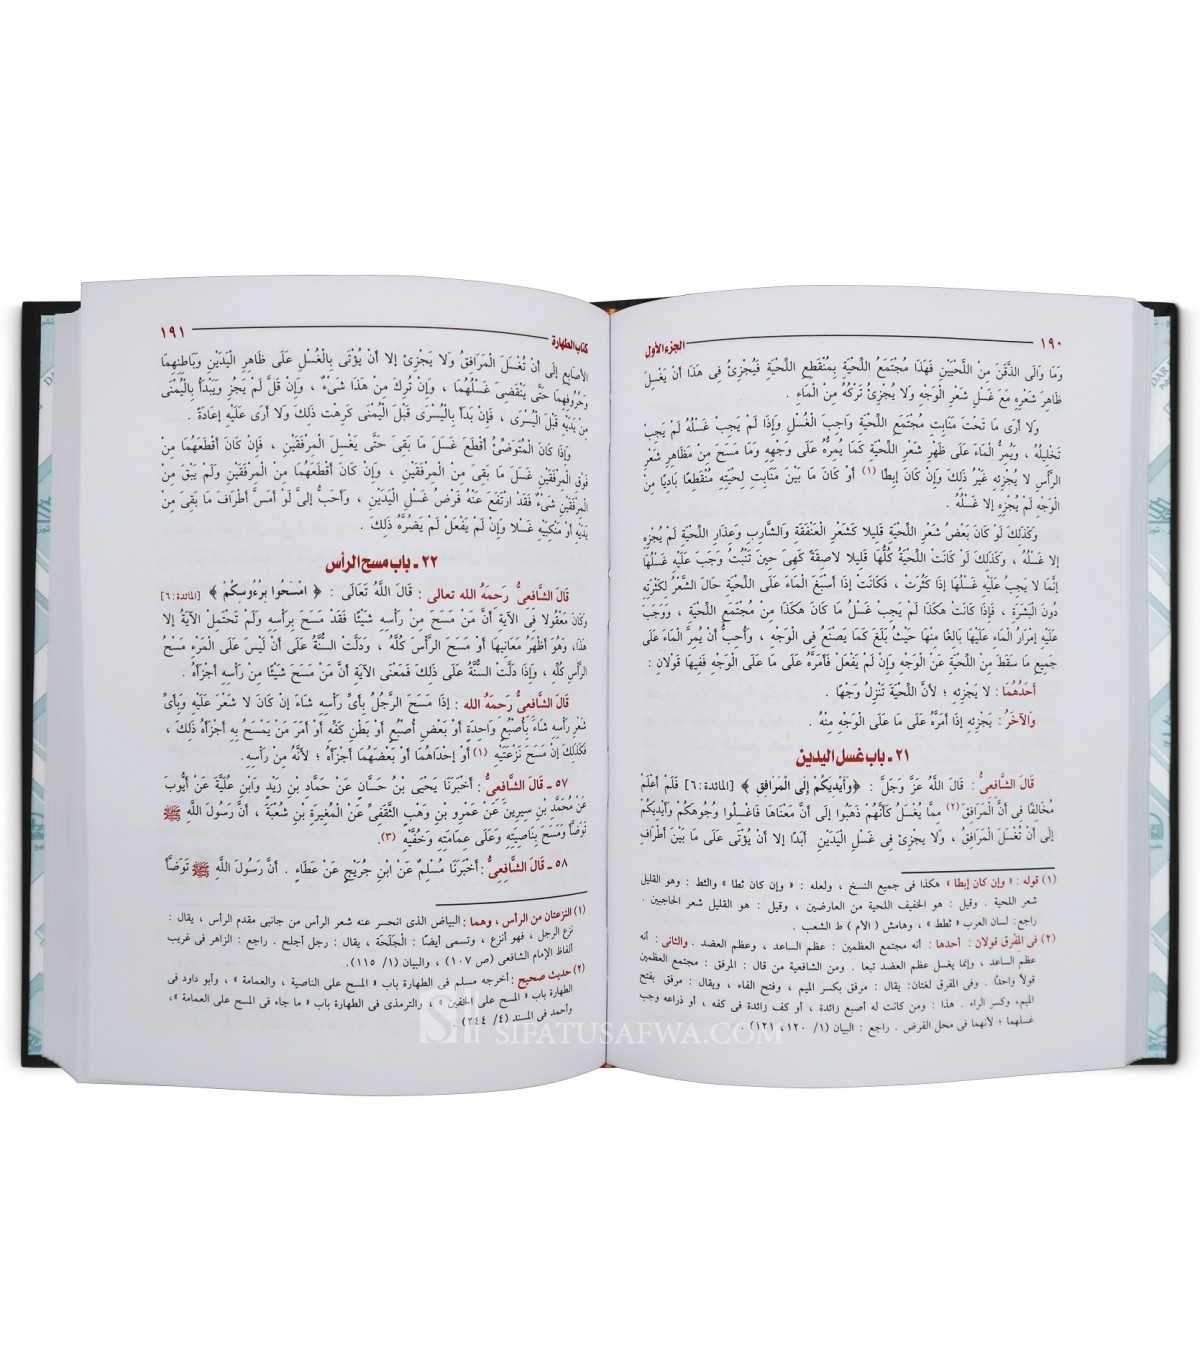 ١٩٠ الجزء الأول
وَمَا وَالَى الذَّقَنَ مِنْ اللَّحْيَيْنِ فَهَذَا مُجْتَمَعُ اللِّحْيَةِ بِمُنْقَطِعِ اللِّحْيَةِ فَيُجْزِئُ فِى هَذَا أَنْ يَغْسِلَ
ظَاهِرَ شَعْرِهِ مَعَ غَسْلِ شَعْرِ الْوَجْهِ وَلَا يُجْزِئُ تَرْكُهُ مِنْ الْمَاءِ .
وَلَا أَرَى مَا تَحْتَ مَنَابِتِ مُجْتَمَعِ اللِّحْيَةِ وَاجِبَ الْغُسْلِ وَإِذَا لَمْ يَجِبْ غَسْلُهُ لَمْ يَجِبْ
تَخْلِيلُهُ ، وَيُمِرُّ الْمَاءَ عَلَى ظَهْرِ شَعْرِ اللِّحْيَةِ كَمَا يُمِرُّهُ عَلَى وَجْهِهِ وَمَا مَسَحَ مِنْ مَظَاهِرِ شَعْرِ
الرَّأْسِ لَا يُجْزِئِهِ غَيْرُ ذَلِكَ وَإِنْ كَانَ إبطًا (١) أَوْ كَانَ مَا بَيْنَ مَنَابِتِ لِحْيَتِهِ مُنْقَطِعًا بَادِيًا مِنْ
الْوَجْهِ لَمْ يُجْزِهِ إلا غَسْلُهُ .
وَكَذَلِكَ لَوْ كَانَ بَعْضُ شَعْرِ اللِّحْيَةِ قَلِيلا كَشَعْرِ الْعَنْفَقَةِ وَالشَّارِبِ وَعِذَارِ اللِّحْيَةِ لَمْ يُجْزِهِ
إلا غَسْلُهُ ، وَكَذَلِكَ لَوْ كَانَتْ اللِّحْيَةُ كُلُّهَا قَلِيلا لاصِقَةً كَهِىَ حِينَ تَنْبُتُ وَجَبَ عَلَيْهِ غَسْلُهَا
إنَّمَا لا يَجِبُ عَلَيْهِ غَسْلُهَا إذَا كَثُرَتْ ، فَكَانَتْ إذَا أَسْبَغَ الْمَاءَ عَلَى اللِّحْيَةِ حَالَ الشَّعْرُ لِكَثْرَتِهِ
دُونَ الْبَشَرَةِ ، فَإِذَا كَانَتْ هَكَذَا لَمْ يَجِبْ غَسْلُ مَا كَانَ هَكَذَا مِنْ مُجْتَمَعِ اللِّحْيَةِ ، وَوَجَبَ
عَلَيْهِ إمْرَارُ الْمَاءِ عَلَيْهَا بَالِغًا مِنْهَا حَيْثُ بَلَغَ كَمَا يَصْنَعُ فِى الْوَجْهِ ، وَأُحِبُّ أَنْ يُمِرَّ الْمَاءَ عَلَى
جَمِيعِ مَا سَقَطَ مِنْ اللِّحْيَةِ عَنْ الْوَجْهِ وَإِنْ لَمْ يَفْعَلْ فَأَمَرَّهُ عَلَى مَا عَلَى الْوَجْهِ فَفِيهَا قَوْلانِ :
أَحَدُهُمَا : لا يَجْزِئِهِ ؛ لأَنَّ اللِّحْيَةَ تَنْزِلُ وَجْهًا .
وَالآخَرُ : يَجْزِئِهِ إذَا أَمَرَّهُ عَلَى مَا عَلَى الْوَجْهِ مِنْهُ .
٢١ ـ باب غسل اليدين
قَالَ الشَّافِعِىُّ : قَالَ اللَّهُ عَزَّ وَجَلَّ : ﴿وَأَيْدِيَكُمْ إِلَى الْمَرَافِقِ ﴾ [المائدة : ٦] فَلَمْ أَعْلَمْ
مُخَالِفًا فِى أَنَّ الْمَرَافِقَ (٢) مِمَّا يُغْسَلُ كَأَنَّهُمْ ذَهَبُوا إلَى أَنَّ مَعْنَاهَا فَاغْسِلُوا وُجُوهَكُمْ وَأَيْدِيَكُمْ
إلَى أَنْ تُغْسَلَ الْمَرَافِقُ ، وَلا يجْزِئُ فِى غَسْلِ الْيَدَيْنِ أَبَدًا إلا أَنْ يُؤْتَى عَلَى مَا بَيْنَ أَطْرَافِ
(١) قوله : « وإن كان إبطا » هكذا فى جميع النسخ ، ولعله : « وإن كان ثطا » والثط : وهو القليل
شعر اللحية . وقيل : هو الخفيف اللحية من العارضين ، وقيل : هو القليل شعر الحاجبين .
راجع : لسان العرب « ثطط » ، وهامش ( الأم ) ط الشعب .
(٢) فى المَفْرق قولان : أحدها : أنه مجتمع العظمين : عظم الساعد ، وعظم العضد . والثانى : أنه
عظم الساعد ، وإنما يغسل عظم العضد تبعا . ومن الشافعية من قال : المرفق : مجتمع العظمين
قولاً واحدًا . وفى المَفرق لغتان: يقال : مرفق بكسر الميم ، وفتح الفاء ، ويقال : مرفق بفتح
الميم، وكسر الراء . هذا : ومن كانت له أصبع زائدة ، أو كف زائدة فى كفه ، أو ذراعه وجب
غسلهما ؛ لأنهما فى محل الفرض . راجع : البيان (١/ ١٢٠، ١٢١) .
كتاب الطهارة ١٩١
الأَصَابِعِ إلَى أَنْ تُغْسَلَ الْمَرَافِقُ وَلا يَجْزِئُ إلا أَنْ يُؤْتَى بِالْغُسْلِ عَلَى ظَاهِرِ الْيَدَيْنِ وَبَاطِنِهِمَا
وَحُرُوفِهِمَا حَتَّى يَنْقَضِىَ غَسْلُهُمَا ، وَإِنْ تُرِكَ مِنْ هَذَا شَىْءٌ ، وَإِنْ قَلَّ لَمْ يَجُزِ وَيَبْدَأُ بِالْيُمْنَى
مِنْ يَدَيْهِ قَبْلَ الْيُسْرَى ، فَإِنْ بَدَأَ بِالْيُسْرَى قَبْلَ الْيُمْنَى كَرِهْت ذَلِكَ وَلا أَرَى عَلَيْهِ إعَادَةً .
وَإِذَا كَانَ الْمُتَوَضِّئُ أَقْطَعَ غَسَلَ مَا بَقِىَ حَتَّى يَغْسِلَ الْمِرْفَقَيْنِ ، فَإِنْ كَانَ أَقْطَعَهُمَا مِنْ
فَوْقِ الْمِرْفَقَيْنِ غَسَلَ مَا بَقِىَ مِنْ الْمِرْفَقَيْنِ ، وَإِنْ كَانَ أَقْطَعَهُمَا مِنْ الْمِرْفَقَيْنِ وَلَمْ يَبْقَ مِنْ
الْمِرْفَقَيْنِ شَىْءٌ فَقَدْ ارْتَفَعَ عَنْهُ فَرْضُ غَسْلِ الْيَدَيْنِ ، وَأَحَبُّ إلَىَّ لَوْ أَمَسَّ أَطْرَافَ مَا بَقِىَ مِنْ
يَدَيْهِ أَوْ مَنْكِبَيْهِ غَسْلا وَإِنْ لَمْ يَفْعَلْ لَمْ يَضُرَّهُ ذَلِكَ .
٢٢ ـ باب مسح الرأس
قَالَ الشَّافِعِىُّ رَحِمَهُ الله تعالى : قَالَ اللَّهُ تَعَالَى : ﴿ امْسَحُوا بِرُءُوسِكُمْ ﴾ [المائدة : ٦]
وَكَانَ مَعْقُولا فِى الآيَةِ أَنَّ مَنْ مَسَحَ مِنْ رَأْسِهِ شَيْئًا فَقَدْ مَسَحَ بِرَأْسِهِ وَلَمْ تَحْتَمِلْ الآيَةُ إلا
هَذَا، وَهُوَ أَظْهَرُ مَعَانِيهَا أَوْ مَسَحَ الرَّأْسَ كُلَّهُ ، وَدَلَّتْ السُّنَّةُ عَلَى أَنْ لَيْسَ عَلَى الْمَرْءِ مَسْحُ
الرَّأْسِ كُلِّهِ ، وَإِذَا دَلَّتْ السُّنَّةُ عَلَى ذَلِكَ فَمَعْنَى الآيَةِ أَنَّ مَنْ مَسَحَ شَيْئًا مِنْ رَأْسِهِ أَجْزَأَهُ .
قَالَ الشَّافِعِىُّ رَحِمَهُ الله : إذَا مَسَحَ الرَّجُلُ بِأَىِّ رَأْسِهِ شَاءَ إنْ كَانَ لا شَعْرَ عَلَيْهِ وَبِأَىِّ
شَعْرِ رَأْسِهِ شَاءَ بِأُصْبُعٍ وَاحِدَةٍ أَوْ بَعْضِ أُصْبُعٍ أَوْ بَطْنِ كَفِّهِ أَوْ أَمَرَ مَنْ يَمْسَحُ بِهِ أَجْزَأَهُ ذَلِكَ ،
فَكَذَلِكَ إنْ مَسَحَ نَزْعَتَيْهِ (١) أَوْ إحْدَاهُمَا أَوْ بَعْضَهُمَا أَجْزَأَهُ ؛ لأَنَّهُ مِنْ رَأْسِهِ.
٥٧ ـ قَالَ الشَّافِعِىُّ : أَخْبَرَنَا يَحْيَى بْنُ حَسَّانِ عَنْ حَمَّادِ بْنِ زَيْدٍ وَابْنِ عُلَيَّةَ عَنْ أَيُّوبَ
عَنْ مُحَمَّدِ بْنِ سِيرِينَ عَنْ عَمْرِو بْنِ وَهْبٍ الثَّقَفِىِّ عَنْ الْمُغِيرَةِ بْنِ شُعْبَةَ ، أَنَّ رَسُولَ اللَّهِ ﷺ
تَوَضَّأَ وَمَسَحَ بِنَاصِيَتِهِ وَعَلَى عِمَامَتِهِ وَخُفَّيْهِ (٣).
٥٨ ـ قَالَ الشَّافِعِىُّ : أَخْبَرَنَا مُسْلِمٌ عَنْ ابْنِ جُرَيْجٍ عَنْ عَطَاءٍ . أَنَّ رَسُولَ اللَّهِ ﷺ تَوَضَّأَ
(١) النزعتان من الرأس ، وهما : البياض الذى انحسر عنه شعر الرأس من جانبى مقدم الرأس ، يقال :
نزع الرجل ، فهو أنزع ، وتسمى أيضًا : الْجَلَحَة ، يقال : رجل أجلح . راجع : الزاهر فى غريب
ألفاظ الإمام الشافعى (ص ١٠٧) ، والبيان (١/ ١١٥).
(٢) حديث صحيح : أخرجه مسلم فى الطهارة باب « المسح على الناصية ، والعمامة » ، وأبو داود فى
الطهارة باب « المسح على الخفين » ، والترمذى فى الطهارة باب « ما جاء فى المسح على العمامة »،
وأحمد فى المسند (٤/ ٢٤٤)
SIFATUSAFWA.COM